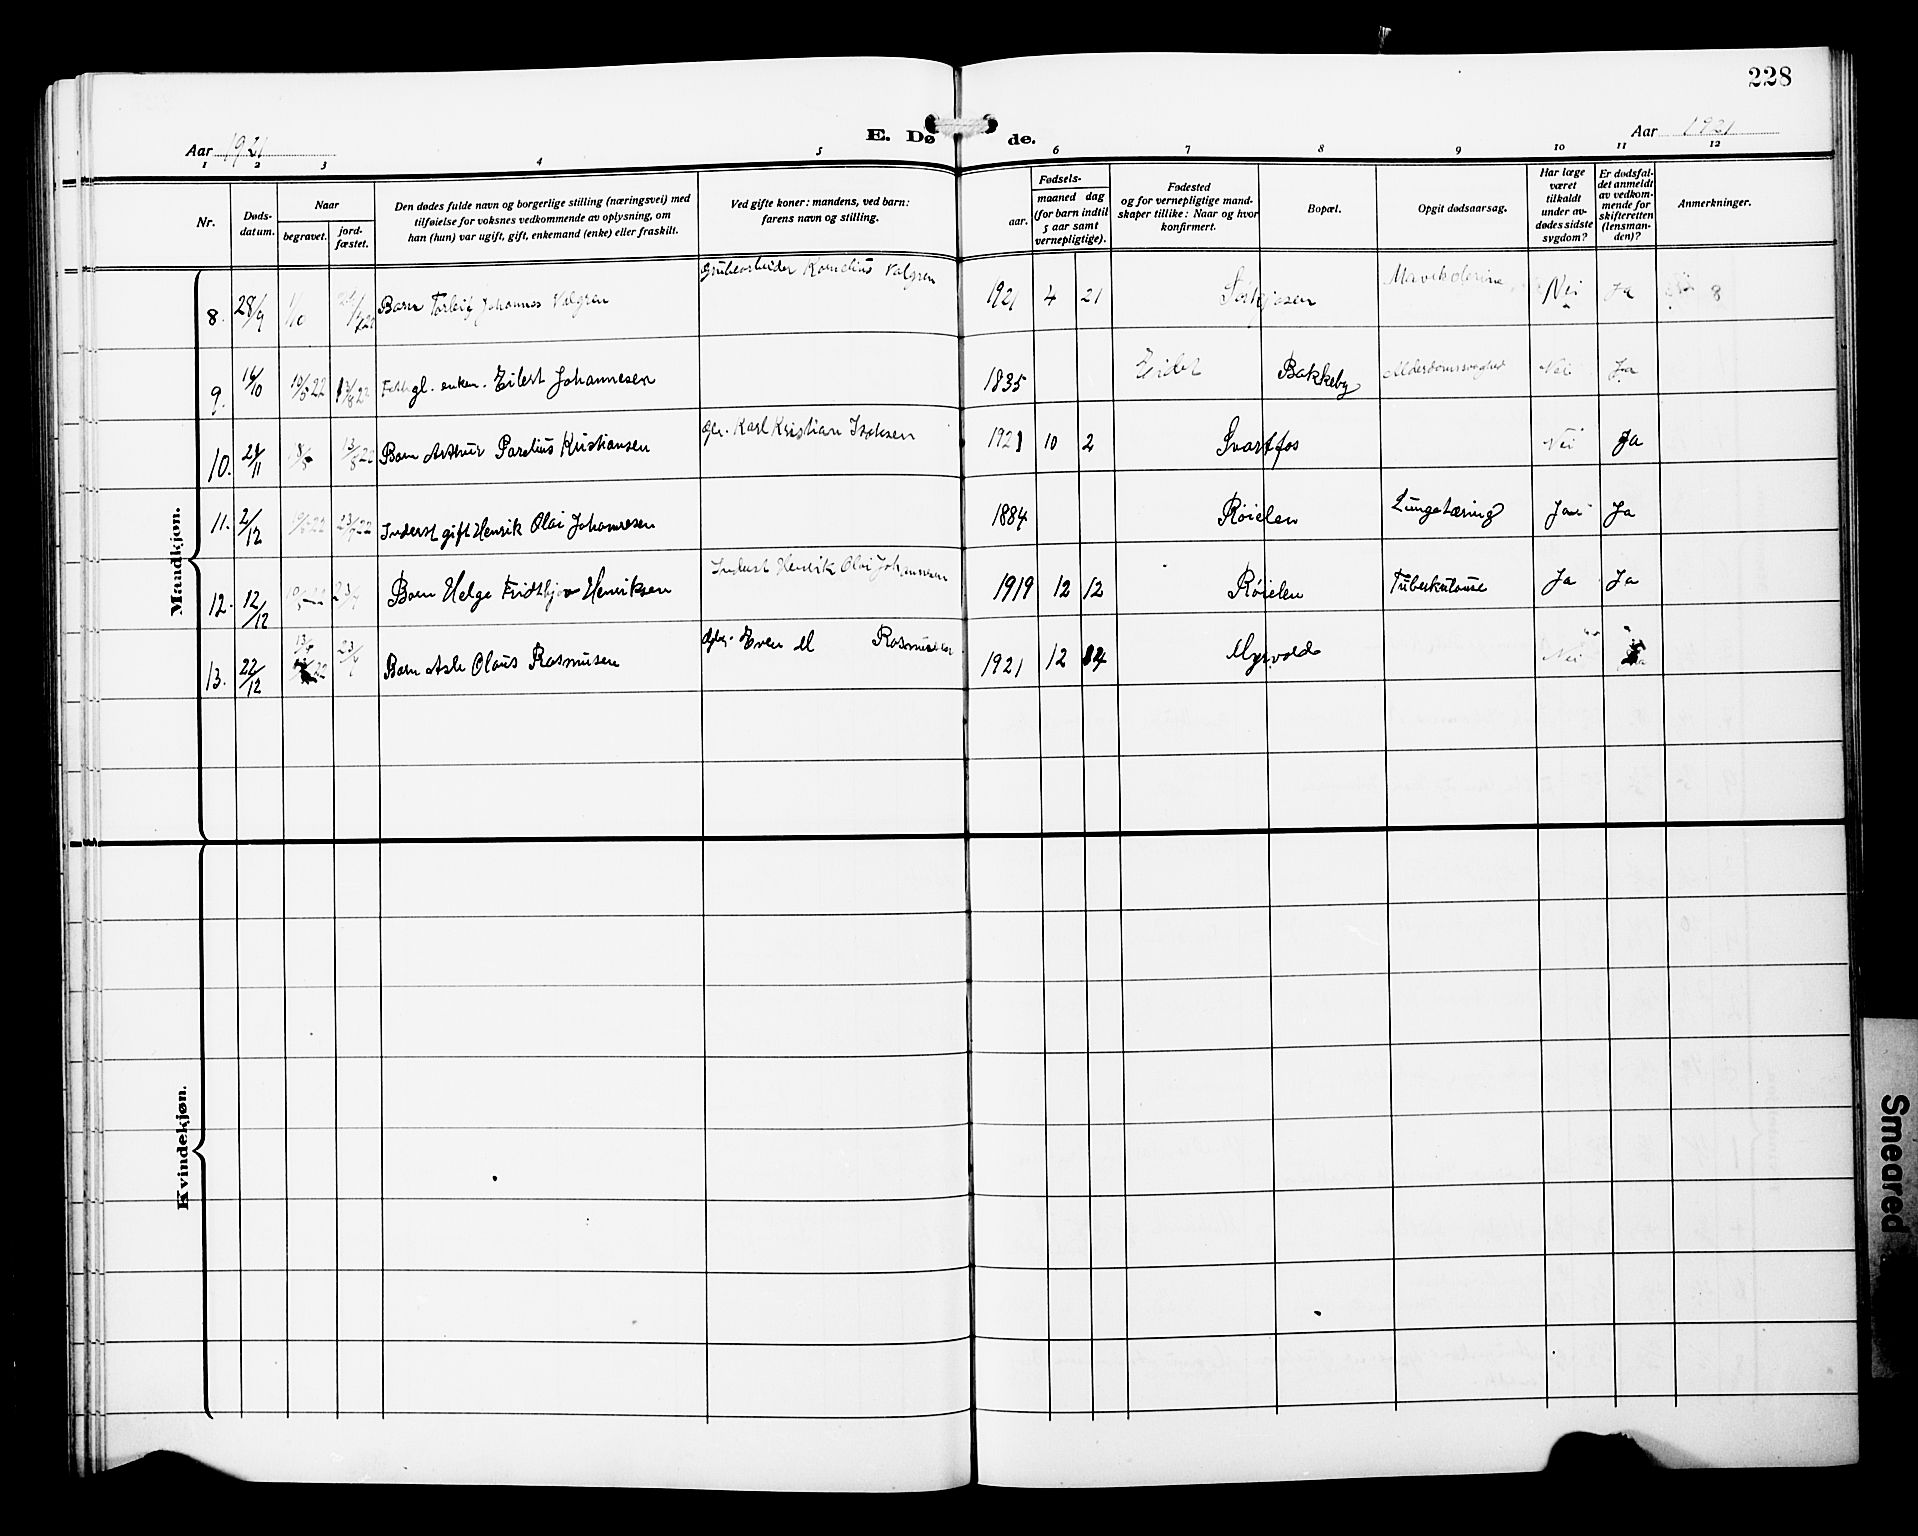 228
Aar 1921
E. Døde.
Aar 1921
1 2 3 4 5 6 7 8 9 10 11 12
Nr.
Døds-
datum.
Naar
begravet.
jord-
fæstet.
Den dødes fulde navn og borgerlige stilling (næringsvei) med
tilføielse for voksnes vedkommende av oplysning, om
han (hun) var ugift, gift, enkemand (enke) eller fraskilt.
Ved gifte koner: mandens, ved barn:
farens navn og stilling.
Fødsels-
aar.
maaned dag
(for barn indtil
5 aar samt
vernepligtige).
Fødested
og for vernepligtige mand-
skaper tillike: Naar og hvor
konfirmert.
Bopæl.
Opgit dødsaarsag.
Har læge
været
tilkaldt
under av-
dødes sidste
sygdom?
Er dødsfal-
det anmeldt
av vedkom-
mende for
skifteretten
(lensman-
den)?
Anmerkninger.
Mandkjøn.
8. 28/9 1/10 Barn Torleif Johannes Valgren Grubearbeider Kornelius Valgren 1921 4 21 Nei Ja 8
9. 16/10 22 22 enkem. Eilert Johannesen 1835 Eidet Bakkeby Alderdomssvaghed Nei Ja
10. 29/11 13/8 22 Barn Arthur Parelius Kristiansen Karl Kristian Isaksen 1921 10 2 Svartfos Nei Ja
11. 2/12 22 22 Inderst gift Henrik Olai Johannesen 1884 Røielen Lungetæring Ja Ja
12. 12/12 Barn Helge Fridtjov Henriksen Inderst Henrik Olai Johannesen 1919 12 12 Røielen Tuberkulouse Ja Ja
13. 22/12 22 Barn Asle Olaus Rasmusen Even M Rasmussen 1921 12 Myrvold Nei
Kvindekjøn.
Smeared